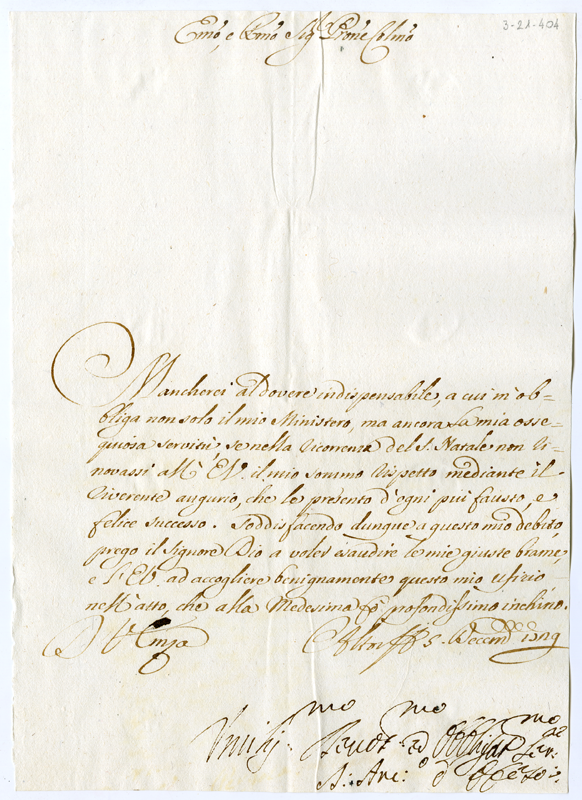 3-21-404
Emo, e Rmo Sigr Prone Colmo
Mancherei al dovere indispensabile, a cui m'ob-
bliga non solo il mio Ministero, ma ancora la mia osse-
quiosa servitù, se nella ricorrenza del S. Natale non ri-
novassi all' E.V. il mio sommo rispetto mediante il
riverente augurio, che le presento d'ogni più fausto, e
felice successo. Soddisfacendo dunque a questo mio debito,
prego il Signore Dio a voler esaudire le mie giuste brame,
e l'E.V. ad accogliere benignamente questo mio ufizio
nell'atto, che alla Medesima fò profondissimo inchino.
D. V. Emza
Altorff 5. Decem
Umilj.mo Devot.mo ed Obbligat.mo